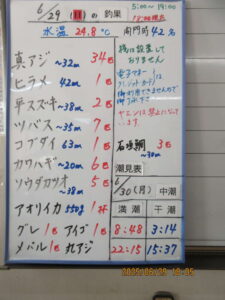 6/29 (日) の釣果
5:00～19:00
18:00現在
水温 24.8℃
開門時 42名
真アジ ～32m 34匹
ヒラメ 42m 1匹
平スズキ ～38m 2匹
ツバス ～35m 7匹
コブダイ 63m 1匹
カワハギ ～20m 6匹
ソウダカツオ ～38m 5匹
アオリイカ 550g 1杯
グレ 1匹 アイゴ 1匹
メバル 1匹 丸アジ
残は設置して
おりません
電子マネー
クレジットカード
御利用できませんので
ヤエンは禁止になって
います。
石垣鯛 3匹
～30m
潮見表
6/30(月) 中潮
満潮 干潮
8:48 3:14
22:15 15:37
2025/06/29 18:05